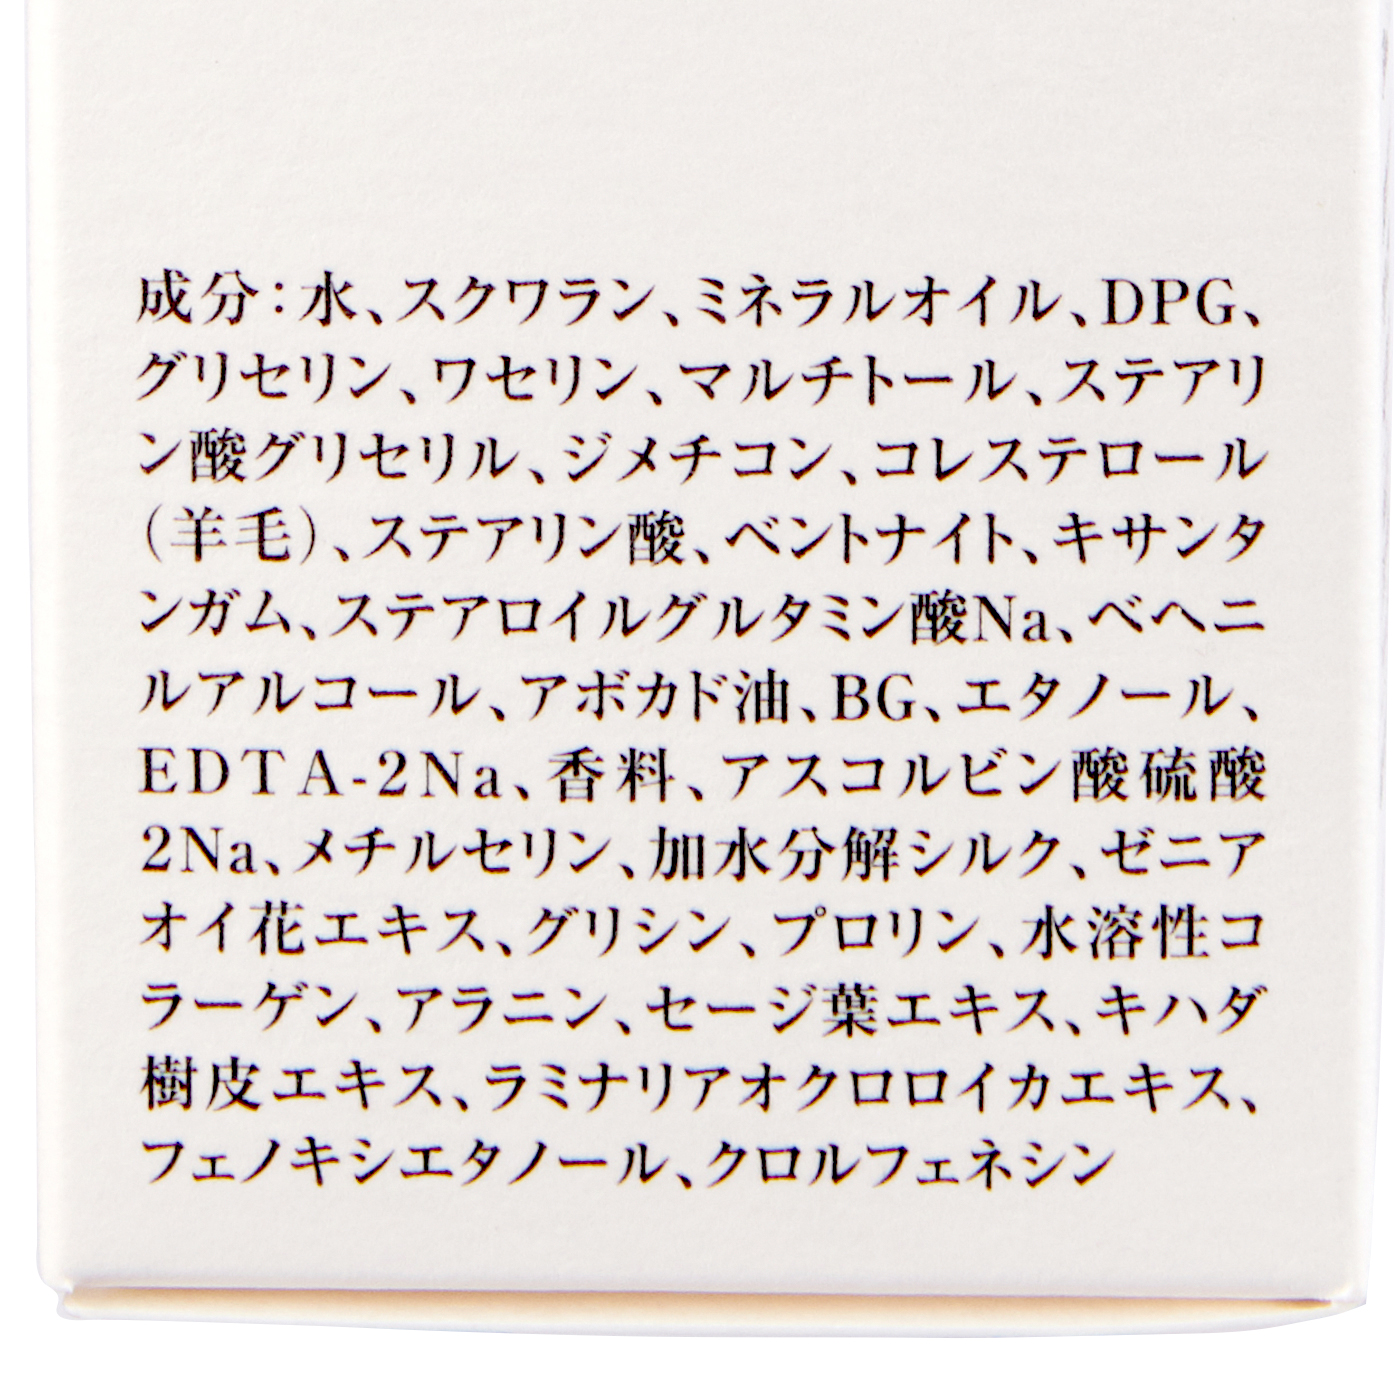 成分:水、スクワラン、ミネラルオイル、DPG、
グリセリン、ワセリン、マルチトール、ステアリ
ン酸グリセリル、ジメチコン、コレステロール
(羊毛)、ステアリン酸、ベントナイト、キサンタ
ンガム、ステアロイルグルタミン酸Na、ベヘニ
ルアルコール、アボカド油、BG、エタノール、
EDTA-2Na、香料、アスコルビン酸硫酸
2Na、メチルセリン、加水分解シルク、ゼニア
オイ花エキス、グリシン、プロリン、水溶性コ
ラーゲン、アラニン、セージ葉エキス、キハダ
樹皮エキス、ラミナリアオクロロイカエキス、
フェノキシエタノール、クロルフェネシン